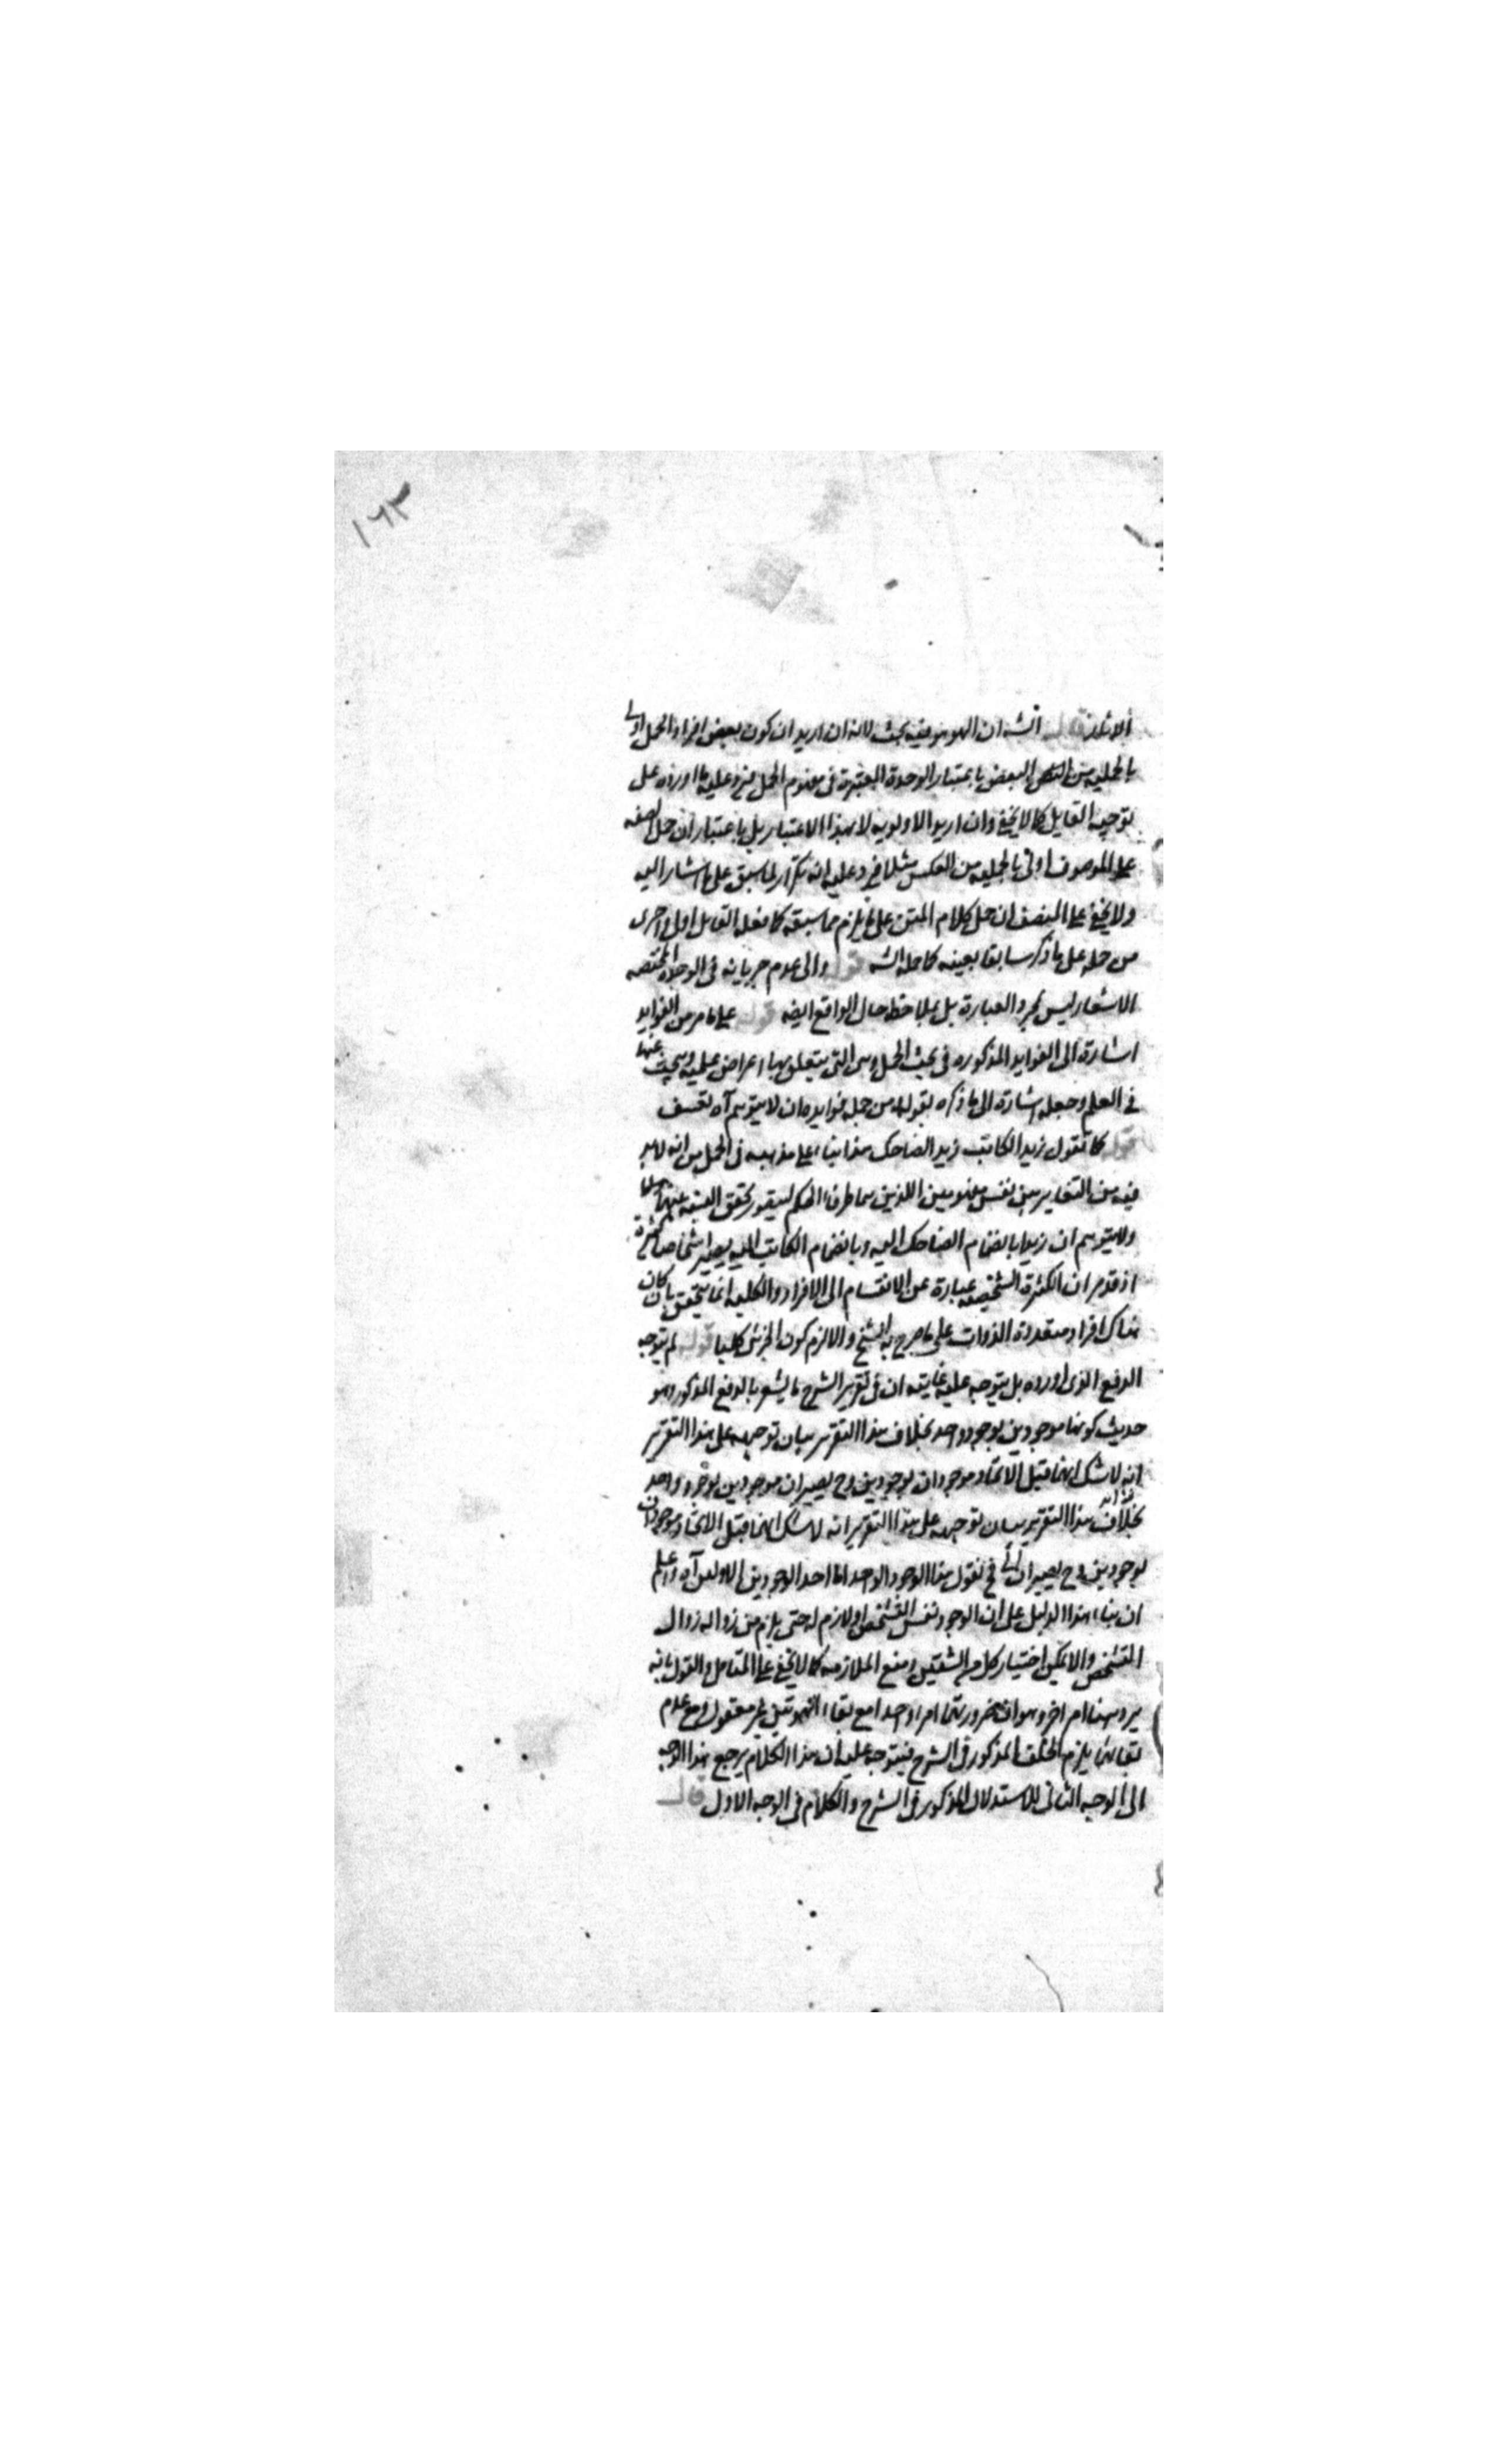 ١٦٣
قال الشه ان الهوهو فيه بحث لانه ان اريد ان كون بعض افراد الحمل اولى
بالحملية من البعض باعتبار الوحدة المعتبرة في مفهوم الحمل فيرد عليه ما اورده على
توجيه القايل كما لا يخفى وان اريد الاولوية لا بهذا الاعتبار بل باعتبار ان حمل الصفه
على الموصوف اولى بالحملية من العكس مثلا فيرد عليه انه تكرار لما سبق على ما اشار اليه
ولا يخفى على المنصف ان حمل كلام المتن على ما يلزم مما سبقه كما فعله القايل اولى واحرى
من حمله على ما ذكر سابقا بعينه كما حمله الشه قوله والى عدم جريانه في الوحدة المختصه
الاشعار ليس بمجرد العبارة بل بملاحظة حال الواقع ايضه قوله على ما مر من الفوايد
اشارة الى الفوايد المذكوره في بحث الحمل وهى التى يتعلق بها اعراض علميه ويبحث عنها
في العلم وجعله اشارة الى ما ذكره بقوله من جملة فوايده ان لا يتوهم آه تعسف
قوله كما تقول زيد الكاتب زيد الضاحك هذا بناء على مذهبه في الحمل من انه لابد
فيه من التغاير بين نفس مفهومين اللذين هما طرفا الحكم ليتصور تحقق النسبه بينهما
ولا يتوهم ان زيدا بانضمام الضاحك اليه وبانضمام الكاتب اليه يصير اشخاصا كثيرة
اذ قد مر ان الكثرة الشخصيه عبارة عن الانقسام الى الافراد والكليه انما يتحقق بان كان
هناك افراد متعددة الذوات على ما صرح به الشيخ والا لزم كون الجزئى كليا قوله لم يتوجه
الدفع الذى اورده بل يتوجه عليه غايته ان في تقرير الشرح ما يشعر بالدفع المذكور وهو
حديث كونهما موجودين بوجود واحد بخلاف هذا التقرير بيان توجيهه على هذا التقرير
انه لا شك انهما قبل الاتحاد موجودان بوجودين وح يصيران موجودين بوجود واحد
بخلاف هذا التقرير بيان توجيهه على هذا التقرير انه لا شك انهما قبل الاتحاد موجودان
بوجودين وح يصيران فح نقول هذا الوجود الواحد اما احد الوجودين الاولين آه واعلم
ان بناء هذا الدليل على ان الوجود نفس التشخص او لازم له حتى يلزم من زواله زوال
التشخص والا يمكن اختيار كل من الشقين ومنع الملازمه كما لا يخفى على المتامل والقول بانه
يرد هنا امر اخر وهو ان صيرورتهما امرا واحدا مع بقاء غير معقول ومع عدم
بقائهما يلزم الخلف المذكور في الشرح فيتوجه عليه ان هذا الكلام يرجع بهذا الوجه
الى الوجه الثانى للاستدلال المذكور في الشرح والكلام في الوجه الاول قال